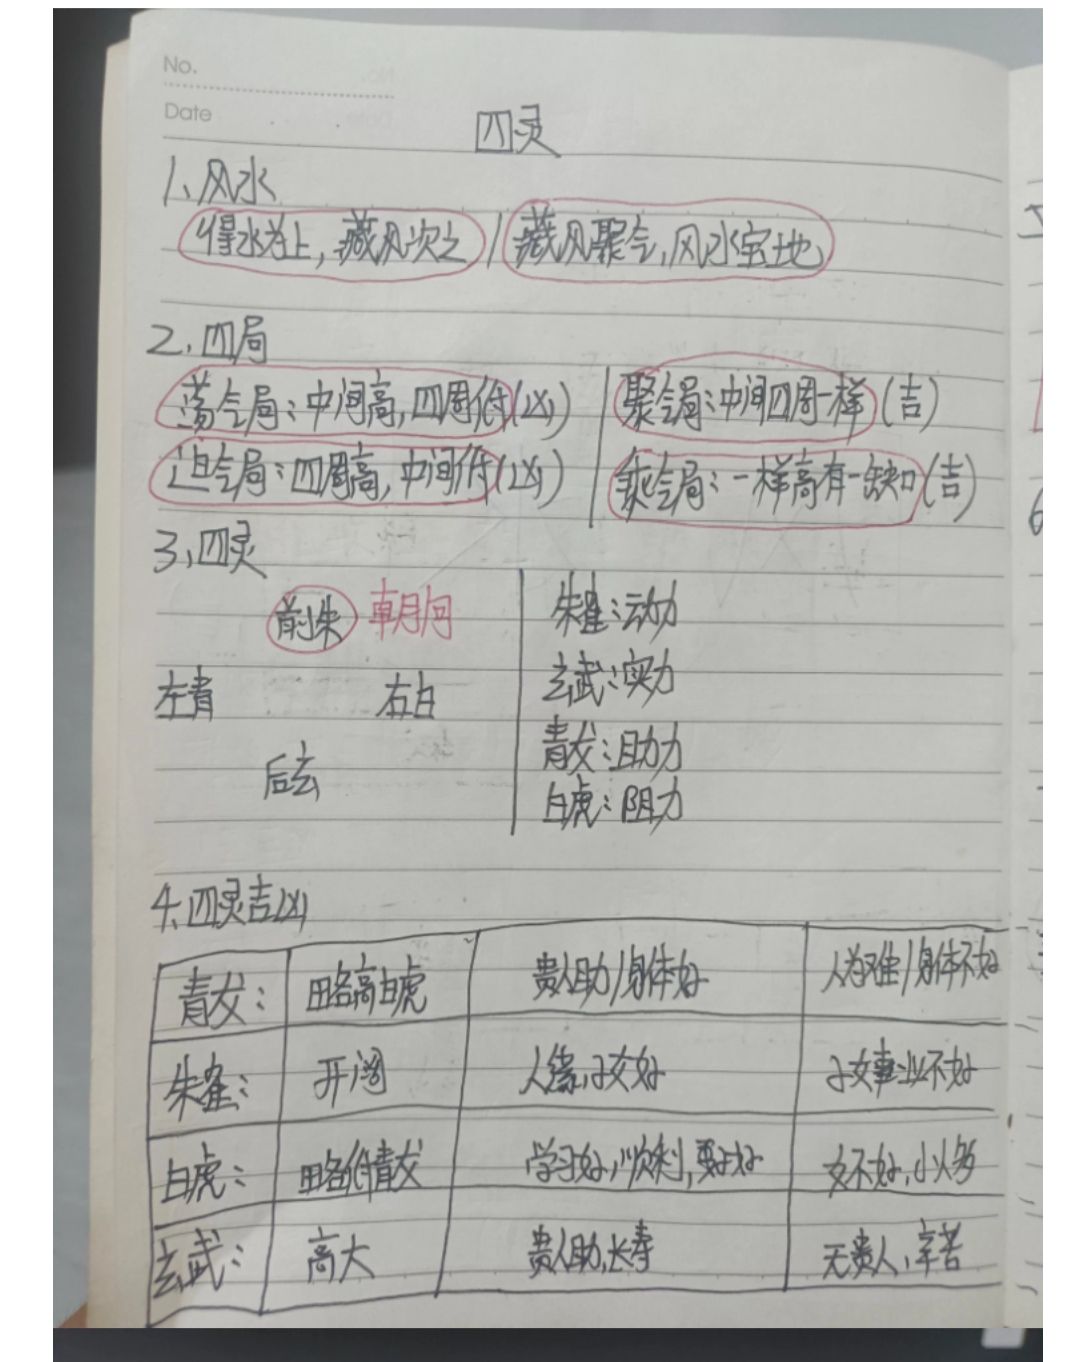 No.
Date
四灵
1、风水
得水为上,藏风次之 / 藏风聚气,风水宝地
2、四局
荡气局:中间高,四周低(凶) 聚气局:中间四周一样(吉)
迫气局:四周高,中间低(凶) 乘气局:一样高有一缺口(吉)
3、四灵
前朱 朝向 朱雀:动力
左青 右白 玄武:实力
后玄 青龙:助力
白虎:阻力
4、四灵吉凶
青龙: 略高白虎 贵人助/身体好 人为难/身体不好
朱雀: 开阔 人缘,子女好 子女事业不好
白虎: 略低青龙 学习好,顺利,好 女不好,小人多
玄武: 高大 贵人助,长寿 无贵人,辛苦